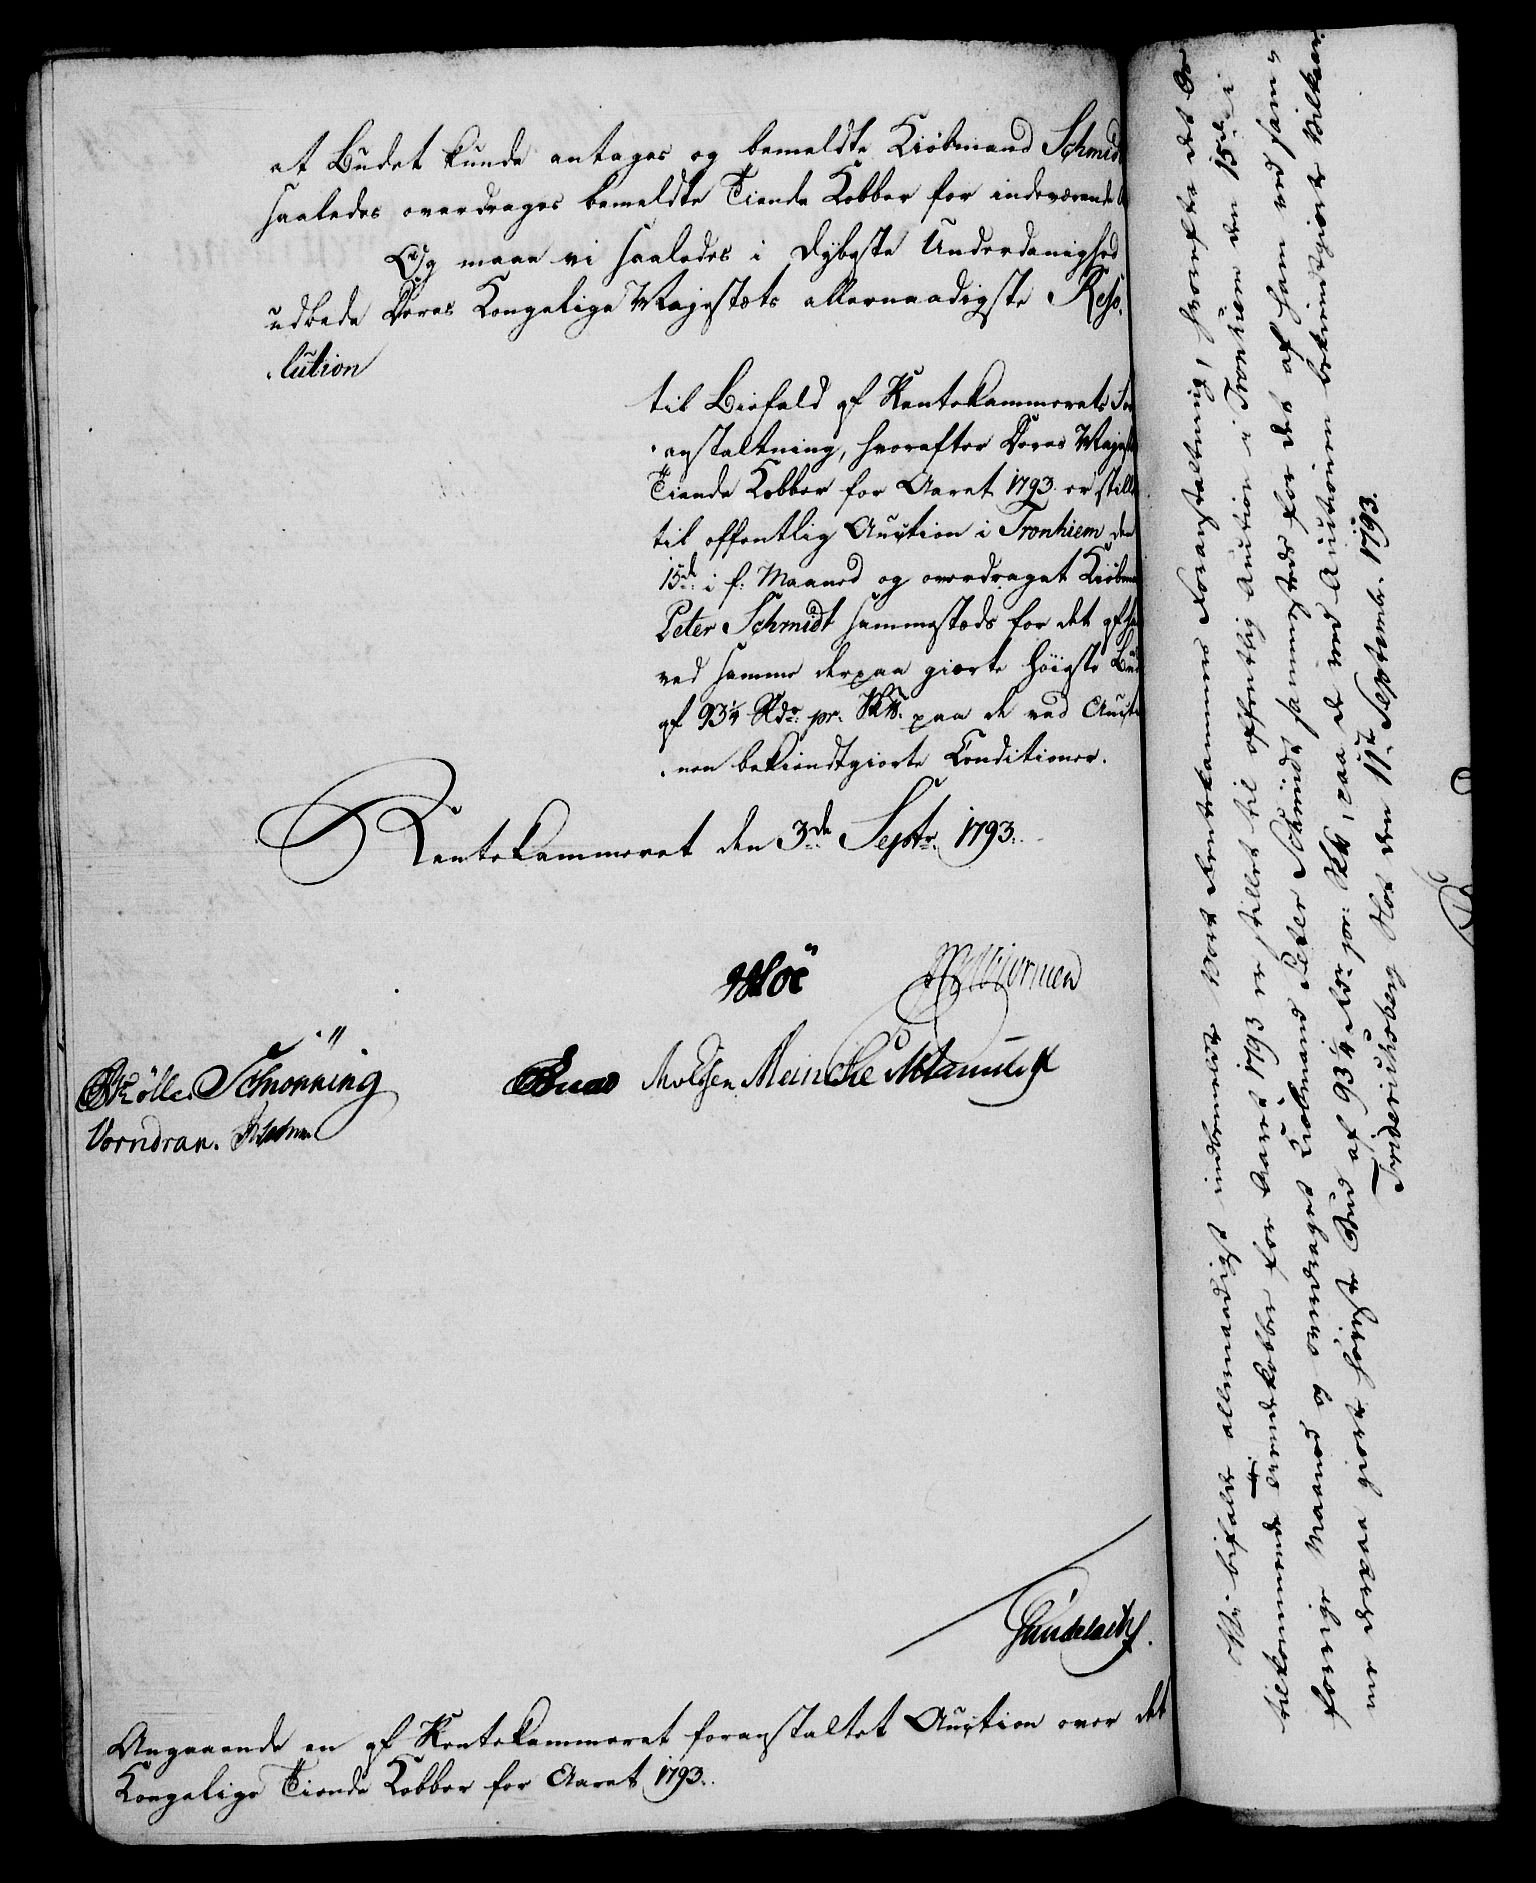 at Budet kunde antages og bemeldte Kiøbmand Schmidt
saaledes overdrages bemeldte Tiende Kobber for indeværende
Og maae vi saaledes i dybeste Underdanighed
udbede Deres Kongelige Majestæts allernaadigste Reso-
lution
til Biefald af Rentekammerets For-
anstaltning, hvorefter Deres Majest
Tiende Kobber for Aaret 1793 er stillet
til offentlig Auction i Tronhiem den
15de i f: Maaned og overdraget Kiøbm
Peter Schmidt sammestæds for det af ham
ved samme derpaa giorte høieste Bud
af 93 1/4 Rdr pr. Sk℔. paa de ved Aucti-
onen bekiendtgiorte Conditioner.
Rentekammeret den 3de Septr. 1793.
Hoë
Müller Schönning
Meincke
Vorndran.
Gundelach.
Angaaende en af Rentekammeret foranstaltet Auction over det
Kongelige Tiende Kobber for Aaret 1793.
Vi bifalde allernaadigst indbemeldte Vort Rentekammers Foranstaltning, hvorefter det Os
tilkommende Tiendekobber for Aaret 1793 er stillet til offentlig Auction i Tronhiem den 15de i
forrige Maaned og overdraget Kiøbmand Peter Schmidt sammesteds for det af ham ved sam-
me derpaa giorte høieste Bud af 93 1/4 Rdr pr: Sk℔, paa de ved Auctionen bekiendtgiorte Vilkaar.
Friderichsberg Slot den 11te September 1793.